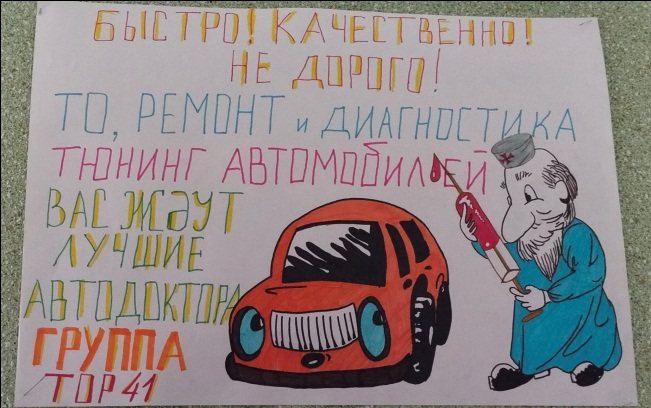 БЫСТРО! КАЧЕСТВЕННО!
НЕ ДОРОГО!
ТО, РЕМОНТ и ДИАГНОСТИКА
ТЮНИНГ АВТОМОБИЛЕЙ
ВАС ЖДУТ
ЛУЧШИЕ
АВТОДОКТОРА
ГРУППА
ТОР 41